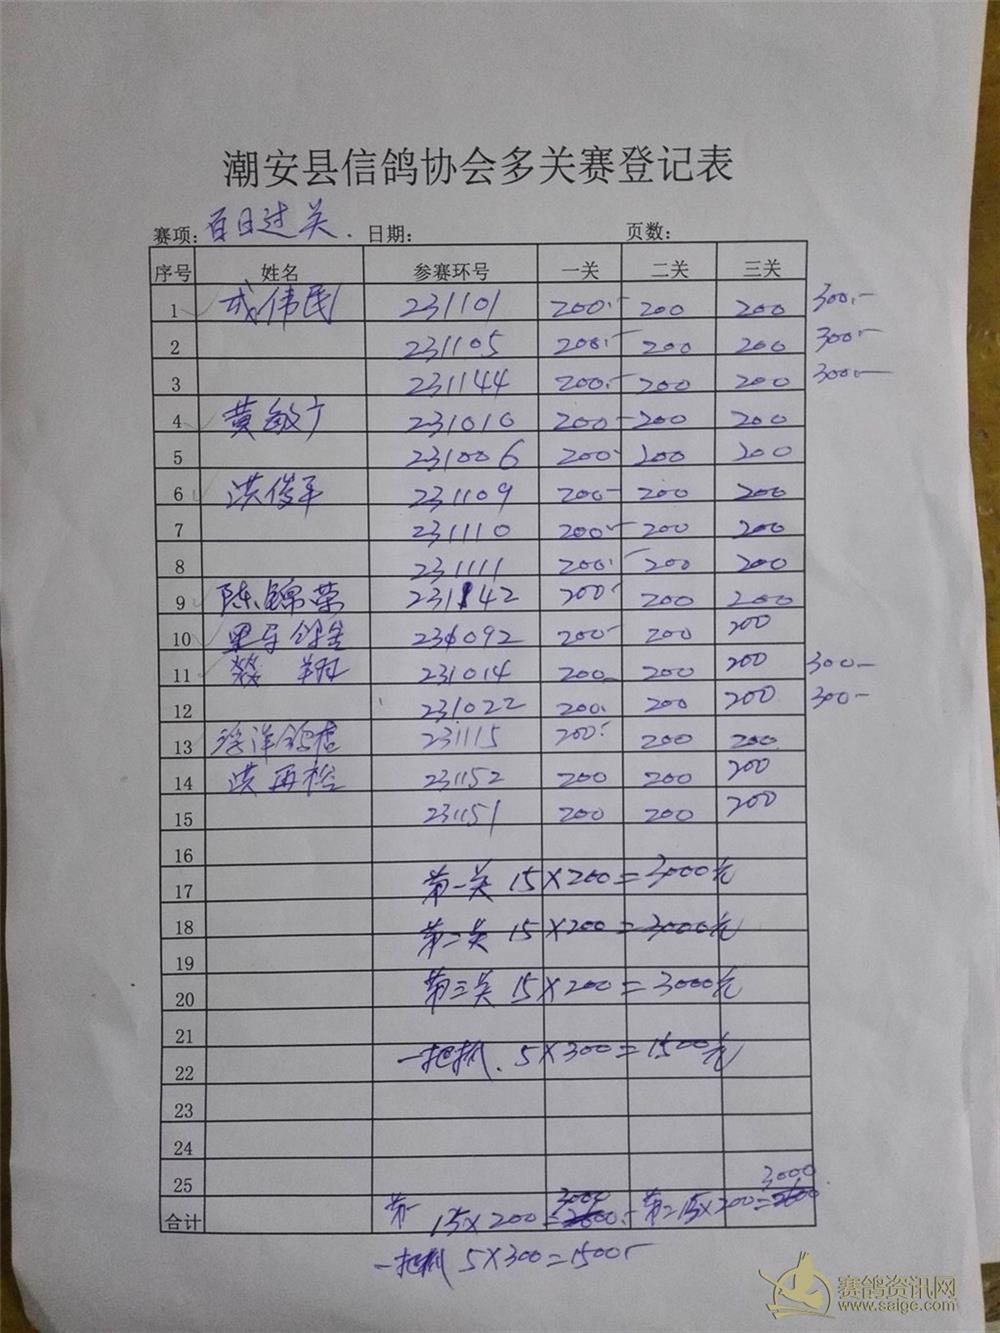 潮安县信鸽协会多关赛登记表
赛项: 百日过关. 日期: 页数:
序号 姓名 参赛环号 一关 二关 三关
1 伟民 231101 200.- 200 200 300.-
2 231105 200.- 200 200 300.-
3 231144 200.- 200 200 300.-
4 黄敏广 231010 200- 200 200
5 231006 200- 200 200
6 洪俊平 231109 200- 200 200
7 231110 200- 200 200
8 231111 200.- 200 200
9 陈锦荣 231142 200- 200 200
10 231092 200- 200 200
11 翔 231014 200- 200 200 300-
12 231022 200. 200 200 300-
13 浮洋鸽店 231115 200- 200 200
14 洪再松 231152 200 200 200
15 231151 200 200 200
16
17 第一关 15×200=3000元
18 第二关 15×200=3000元
19
20 第三关 15×200=3000元
21
22 一把抓. 5×300=1500元
23
24
25 3000 3000
合计 第一 15×200= 第二 15×200=
一把抓 5×300=1500-
赛鸽资讯网
www.saige.com